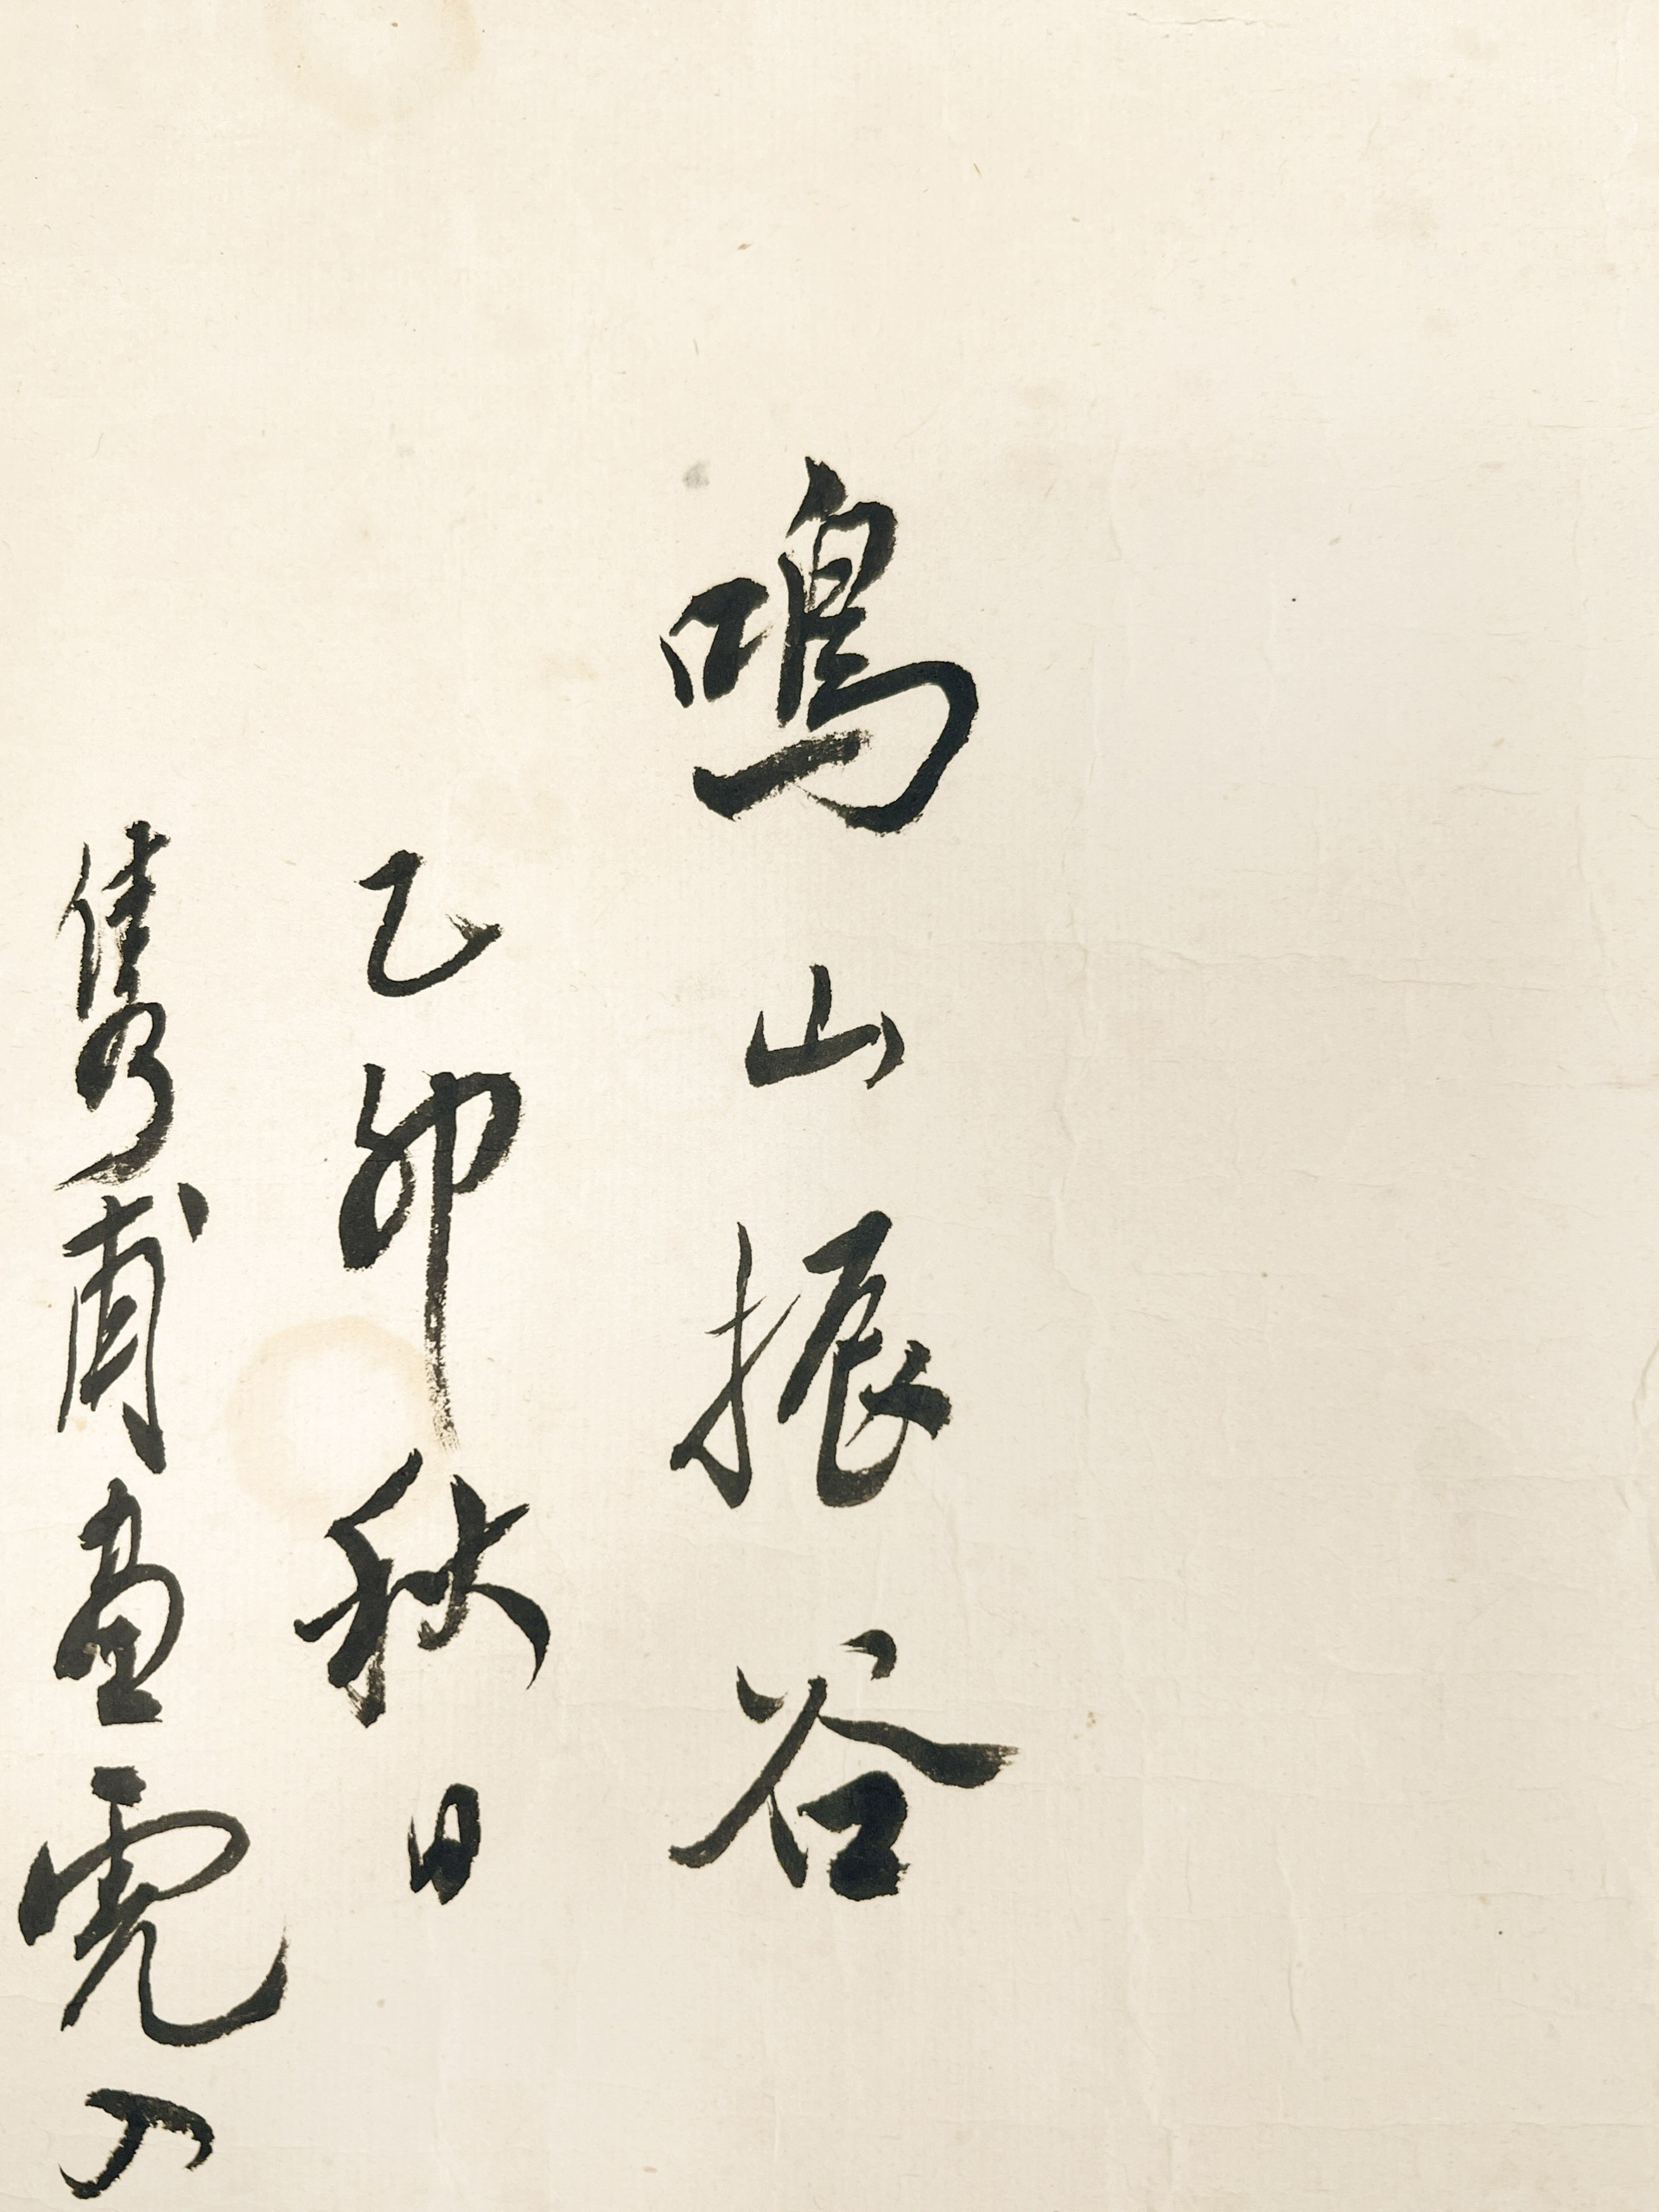 鳴山振谷
乙卯秋日
雋甫畫虎入